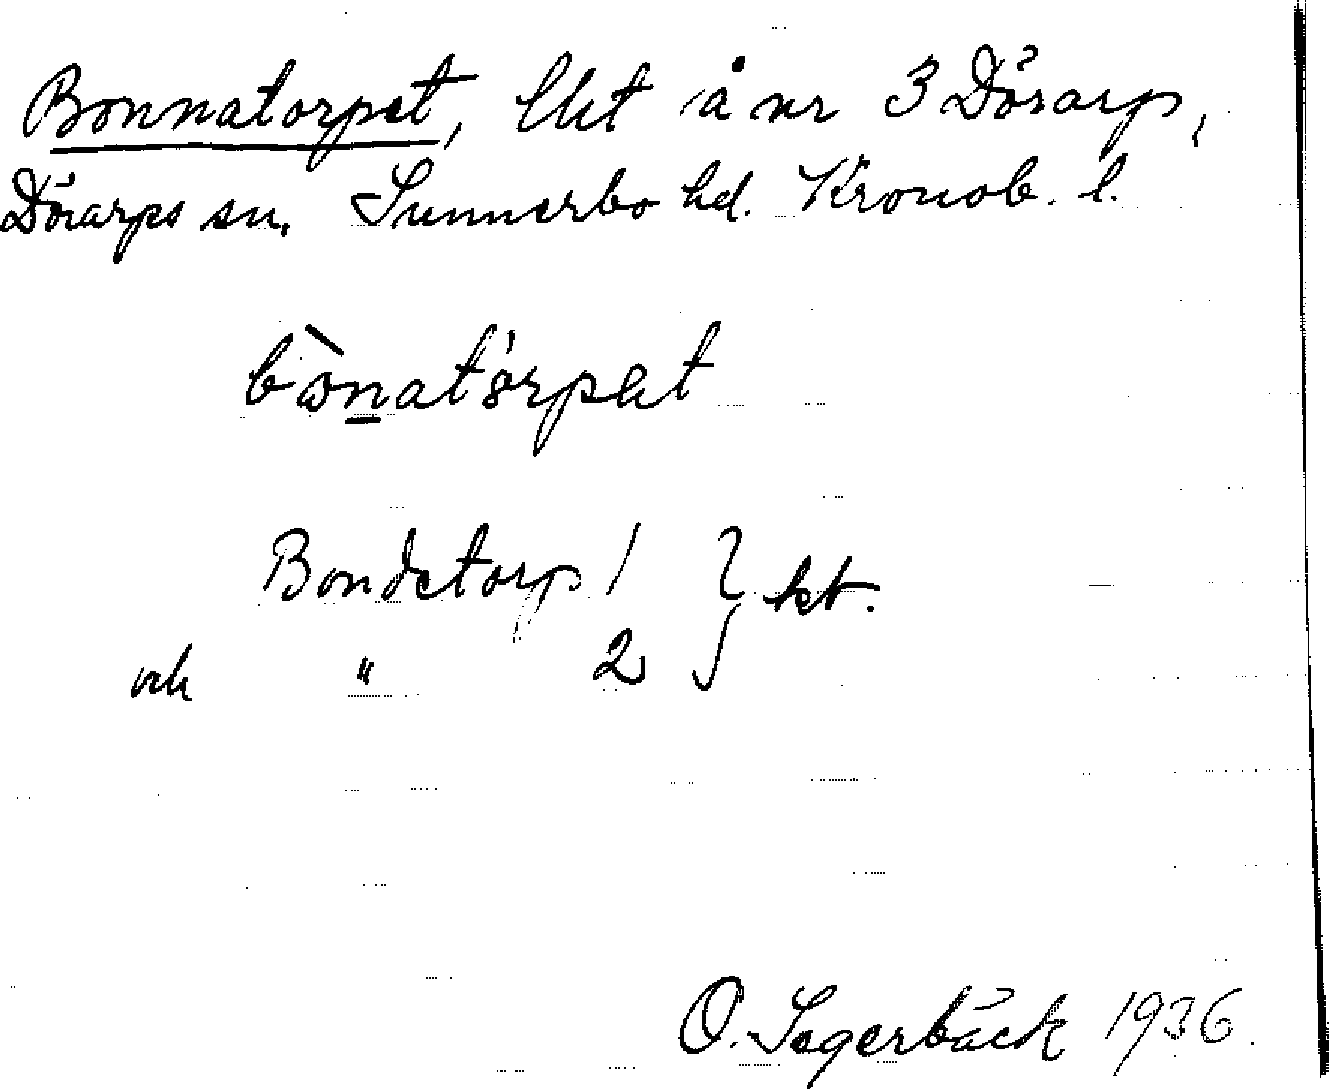 Bonnatorpet, lht å nr 3 Dörarp,
Dörarps sn, Sunnerbo hd. Kronob. l.
bònatórpet
Bondetorp 1 } kt.
och " 2
O. Segerbäck 1936.